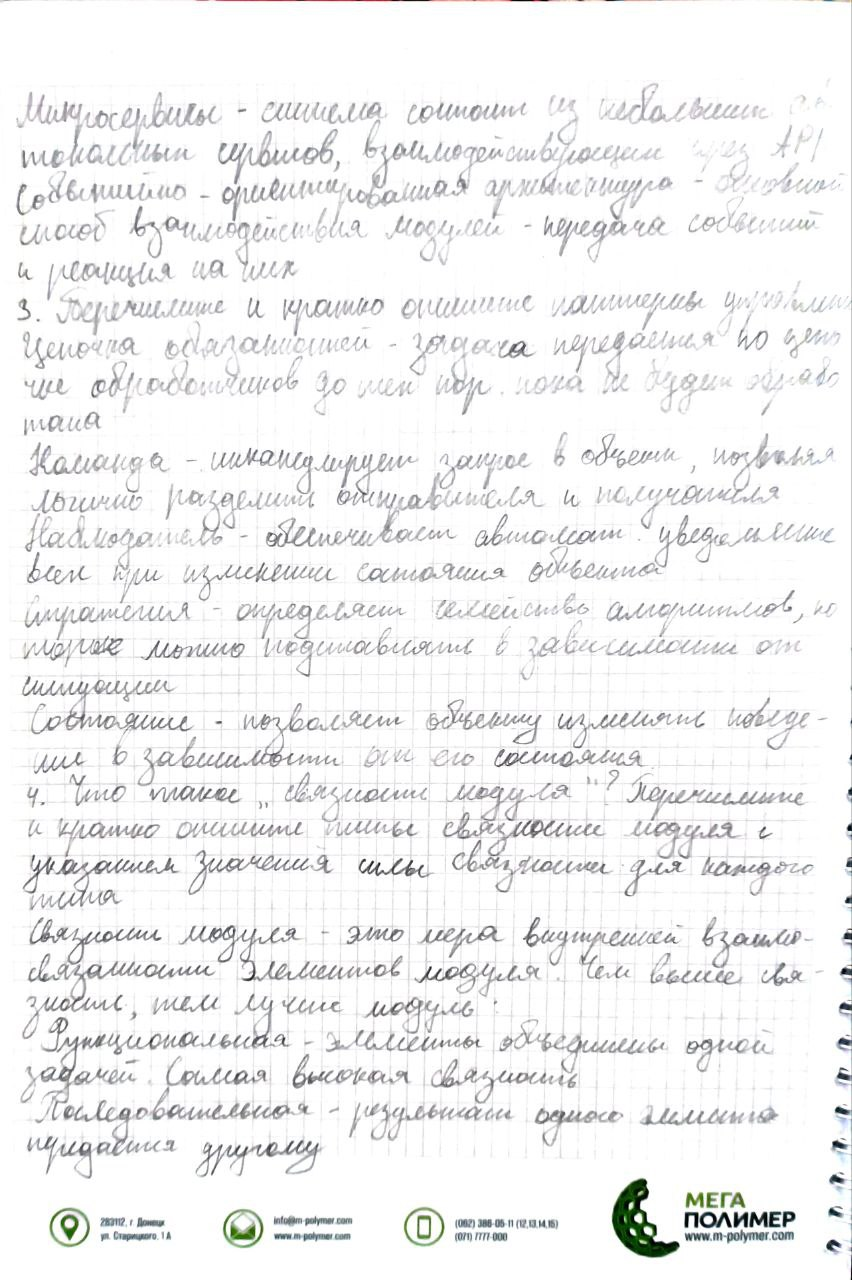 Микросервисы - система состоит из небольших ав
тономных сервисов, взаимодействующих через API
Событийно - ориентированная архитектура - основной
способ взаимодействия модулей - передача событий
и реакция на них
3. Перечислите и кратко опишите паттерны управления
Цепочка обязанностей - задача передается по цепо
чке обработчиков до тех пор. пока не будет обрабо
тана
Команда - инкапсулирует запрос в объект, позволяя
логично разделить отправителя и получателя
Наблюдатель - обеспечивает автомат. уведомление
всех при изменении состояния объекта
Стратегия - определяет семейство алгоритмов, ко
торые можно подставлять в зависимости от
ситуации
Состояние - позволяет объекту изменять поведе-
ние в зависимости от его состояния
4. Что такое „связность модуля"? Перечислите
и кратко опишите типы связности модуля с
указанием значения силы связности для каждого
типа
Связность модуля - это мера внутренней взаимо-
связанности элементов модуля. Чем выше свя-
зность, тем лучше модуль:
Функциональная - элементы объединены одной
задачей. Самая высокая связность
Последовательная - результат одного элемента
передается другому
283112, г. Донецк
ул. Старицкого, 1А
info@m-polymer.com
www.m-polymer.com
(062) 386-05-11 (12,13,14,15)
(071) 7777-000
МЕГА
ПОЛИМЕР
www.m-polymer.com